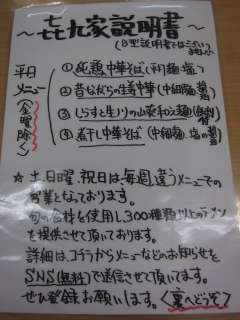 ～㐂九家説明書～
平日
メニュー
(金曜除く)
①純鶏中華そば(平打麺・塩)
②昔ながらの生姜中華(中細麺・醤油)
③しらすと生ノリの山葵和え麺
④煮干し中華そば(中細麺・塩or醤油)
☆土、日曜、祝日は毎週違うメニューでの
営業となっております。
旬の食材を使用し300種類以上のラーメン
を提供させて頂いております。
詳細はコチラからメニューなどのお知らせを
SNS(無料)で送信させて頂いてます。
ぜひ登録お願いします。〈裏へどうぞ〉